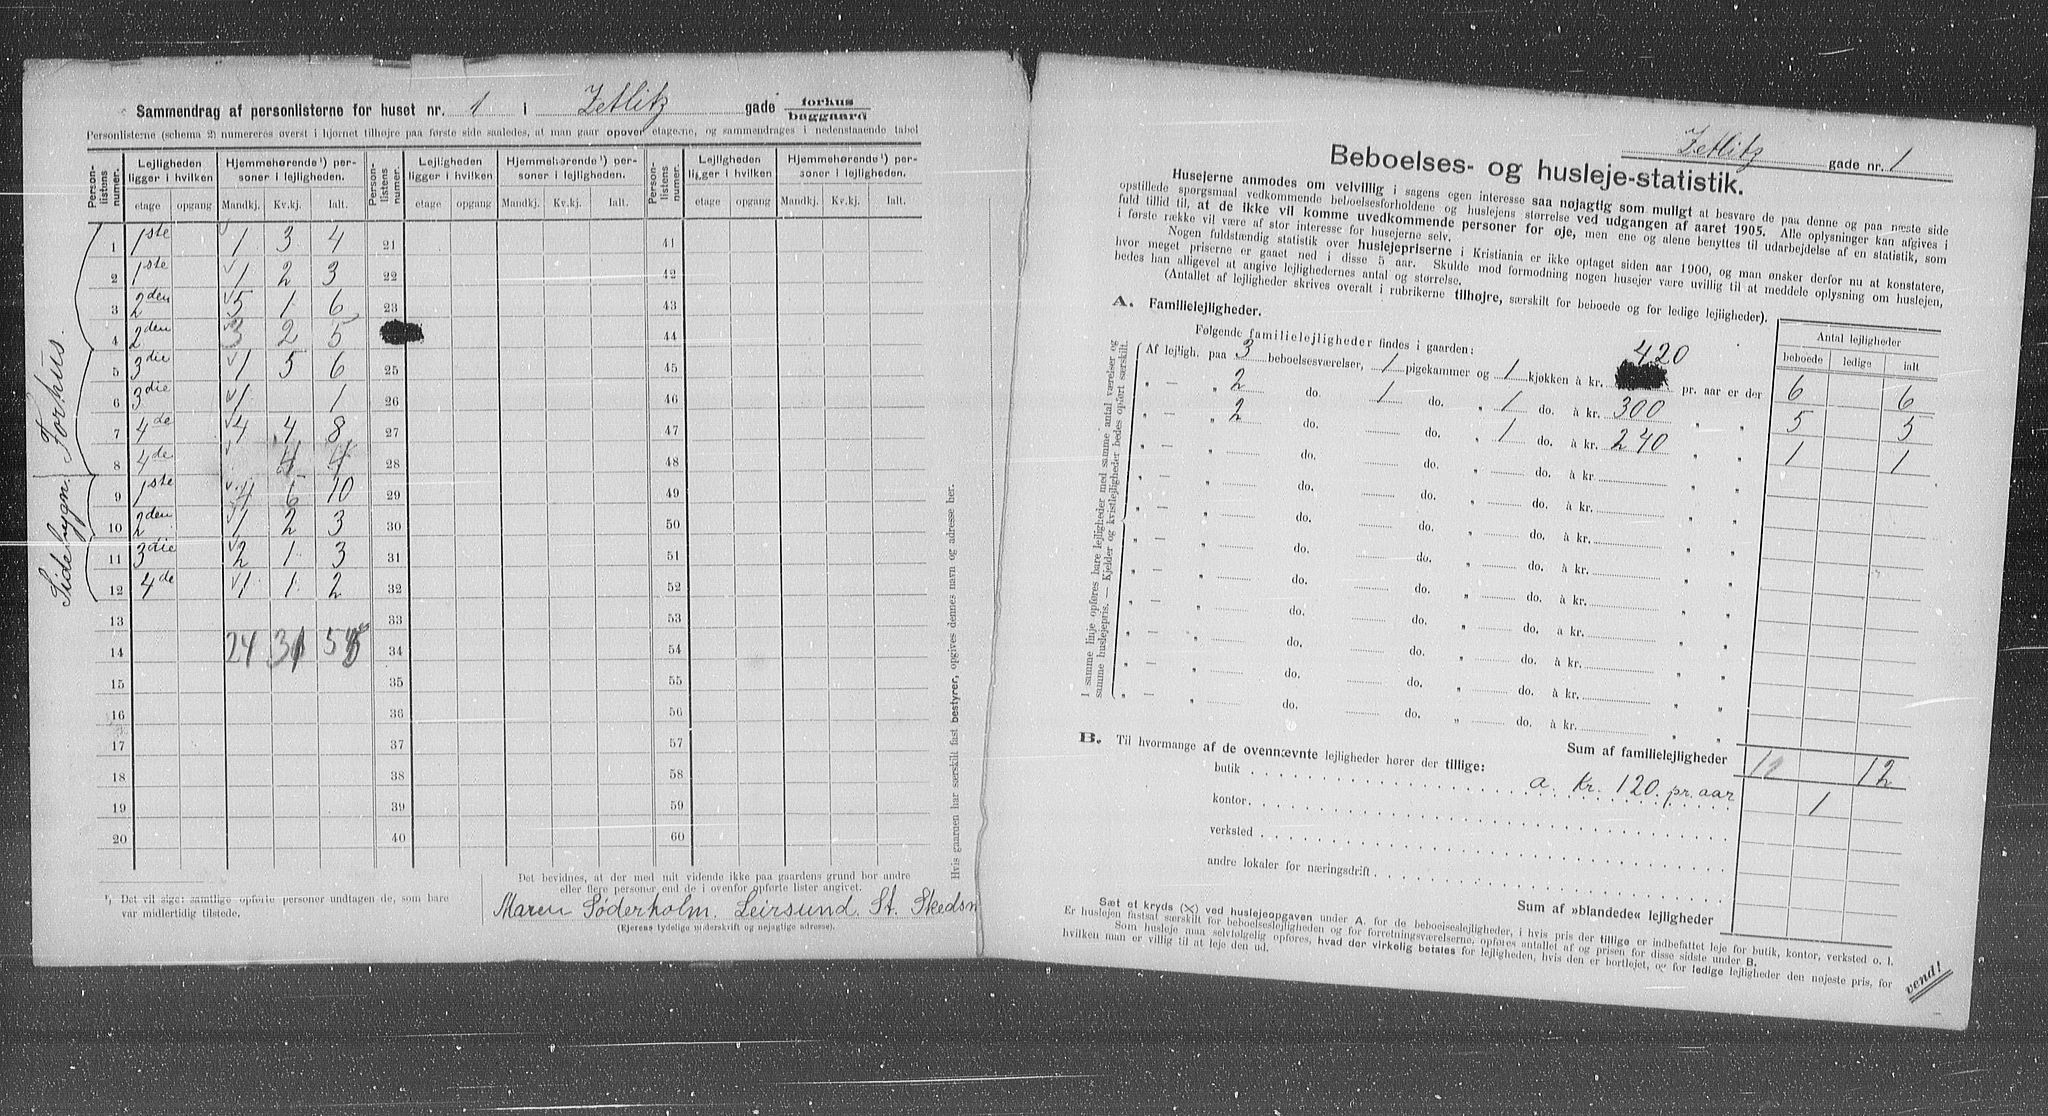 Sammendrag af personlisterne for huset nr. 1 i Zetlitz gade forhus
baggaard
Personlisterne (schema 2) numereres øverst i hjørnet tilhøjre paa første side saaledes, at man gaar opover etagerne, og sammendrages i nedenstaaende tabel
Person-listens numer. Lejligheden ligger i hvilken Hjemmehørende ¹) personer i lejligheden. Person-listens numer. Lejligheden ligger i hvilken Hjemmehørende ¹) personer i lejligheden. Person-listens numer. Lejligheden ligger i hvilken Hjemmehørende ¹) personer i lejligheden.
etage opgang Mandkj. Kv.kj. Ialt. etage opgang Mandkj. Kv.kj. Ialt. etage opgang Mandkj. Kv.kj. Ialt.
Forhus.
1 1ste 1 3 4 21 41
2 1ste 1 2 3 22 42
3 2den 5 1 6 23 43
4 2den 3 2 5 44
5 3die 1 5 6 25 45
6 3die 1 1 26 46
7 4de 4 4 8 27 47
8 4de 4 4 28 48
Sidebygn.
9 1ste 4 6 10 29 49
10 2den 1 2 3 30 50
11 3die 2 1 3 31 51
12 4de 1 1 2 32 52
13 33 53
14 24 34 54
15 35 55
16 36 56
17 37 57
18 38 58
19 39 59
20 40 60
¹) Det vil sige: samtlige opførte personer undtagen de, som bare
var midlertidig tilstede.
Det bevidnes, at der med mit vidende ikke paa gaardens grund bor andre
eller flere personer end de i ovenfor opførte lister angivet.
Maren Søderholm. Leirsund. St. Skedsm
(Ejerens tydelige underskrift og nøjagtige adresse).
Hvis gaarden har særskilt fast bestyrer, opgives dennes navn og adresse her.
Zetlitz gade nr. 1
Beboelses- og husleje-statistik.
Husejerne anmodes om velvillig i sagens egen interesse saa nøjagtig som muligt at besvare de paa denne og paa næste side
opstillede spørgsmaal vedkommende beboelsesforholdene og huslejens størrelse ved udgangen af aaret 1905. Alle oplysninger kan afgives i
fuld tillid til, at de ikke vil komme uvedkommende personer for øje, men ene og alene benyttes til udarbejdelse af en statistik, som
i første række vil være af stor interesse for husejerne selv.
Nogen fuldstændig statistik over huslejepriserne i Kristiania er ikke optaget siden aar 1900, og man ønsker derfor nu at konstatere,
hvor meget priserne er gaaet ned i disse 5 aar. Skulde mod formodning nogen husejer være uvillig til at meddele oplysning om huslejen,
bedes han alligevel at angive lejlighedernes antal og størrelse.
(Antallet af lejligheder skrives overalt i rubrikerne tilhøjre, særskilt for beboede og for ledige lejligheder).
A. Familielejligheder.
Følgende familielejligheder findes i gaarden:
Antal lejligheder
beboede ledige ialt
I samme linje opføres bare lejligheder med samme antal værelser og
samme huslejepris. — Kjelder og kvistlejligheder bedes opført særskilt.
Af lejligh. paa 3 beboelsesværelser, 1 pigekammer og 1 kjøkken à kr. 420 pr. aar er der 6 6
" — " 2 do. 1 do. " 1 do. à kr. 300 " " 5 5
" — " 2 do. do. " 1 do. à kr. 240 " " 1 1
" — " do. do. " do. à kr. " "
" — " do. do. " do. à kr. " "
" — " do. do. " do. à kr. " "
" — " do. do. " do. à kr. " "
" — " do. do. " do. à kr. " "
" — " do. do. " do. à kr. " "
" — " do. do. " do. à kr. " "
" — " do. do. " do. à kr. " "
" — " do. do. " do. à kr. " "
Sum af familielejligheder 12 12
B. Til hvormange af de ovennævnte lejligheder hører der tillige:
butik a. Kr. 120. pr. aar 1
kontor
verksted
andre lokaler for næringsdrift
Sum af »blandede« lejligheder
Sæt et kryds (X) ved huslejeopgaven under A. for de beboelseslejligheder, i hvis pris der tillige er indbefattet leje for butik, kontor, verksted o. l.
Er huslejen fastsat særskilt for beboelseslejligheden og for forretningsværelserne, opføres antallet af og prisen for disse sidste under B.
Som husleje maa selvfølgelig opføres, hvad der virkelig betales for lejligheden, hvis den er bortlejet, og for ledige lejligheder den nøjeste pris, for
hvilken man er villig til at leje den ud.
vend!